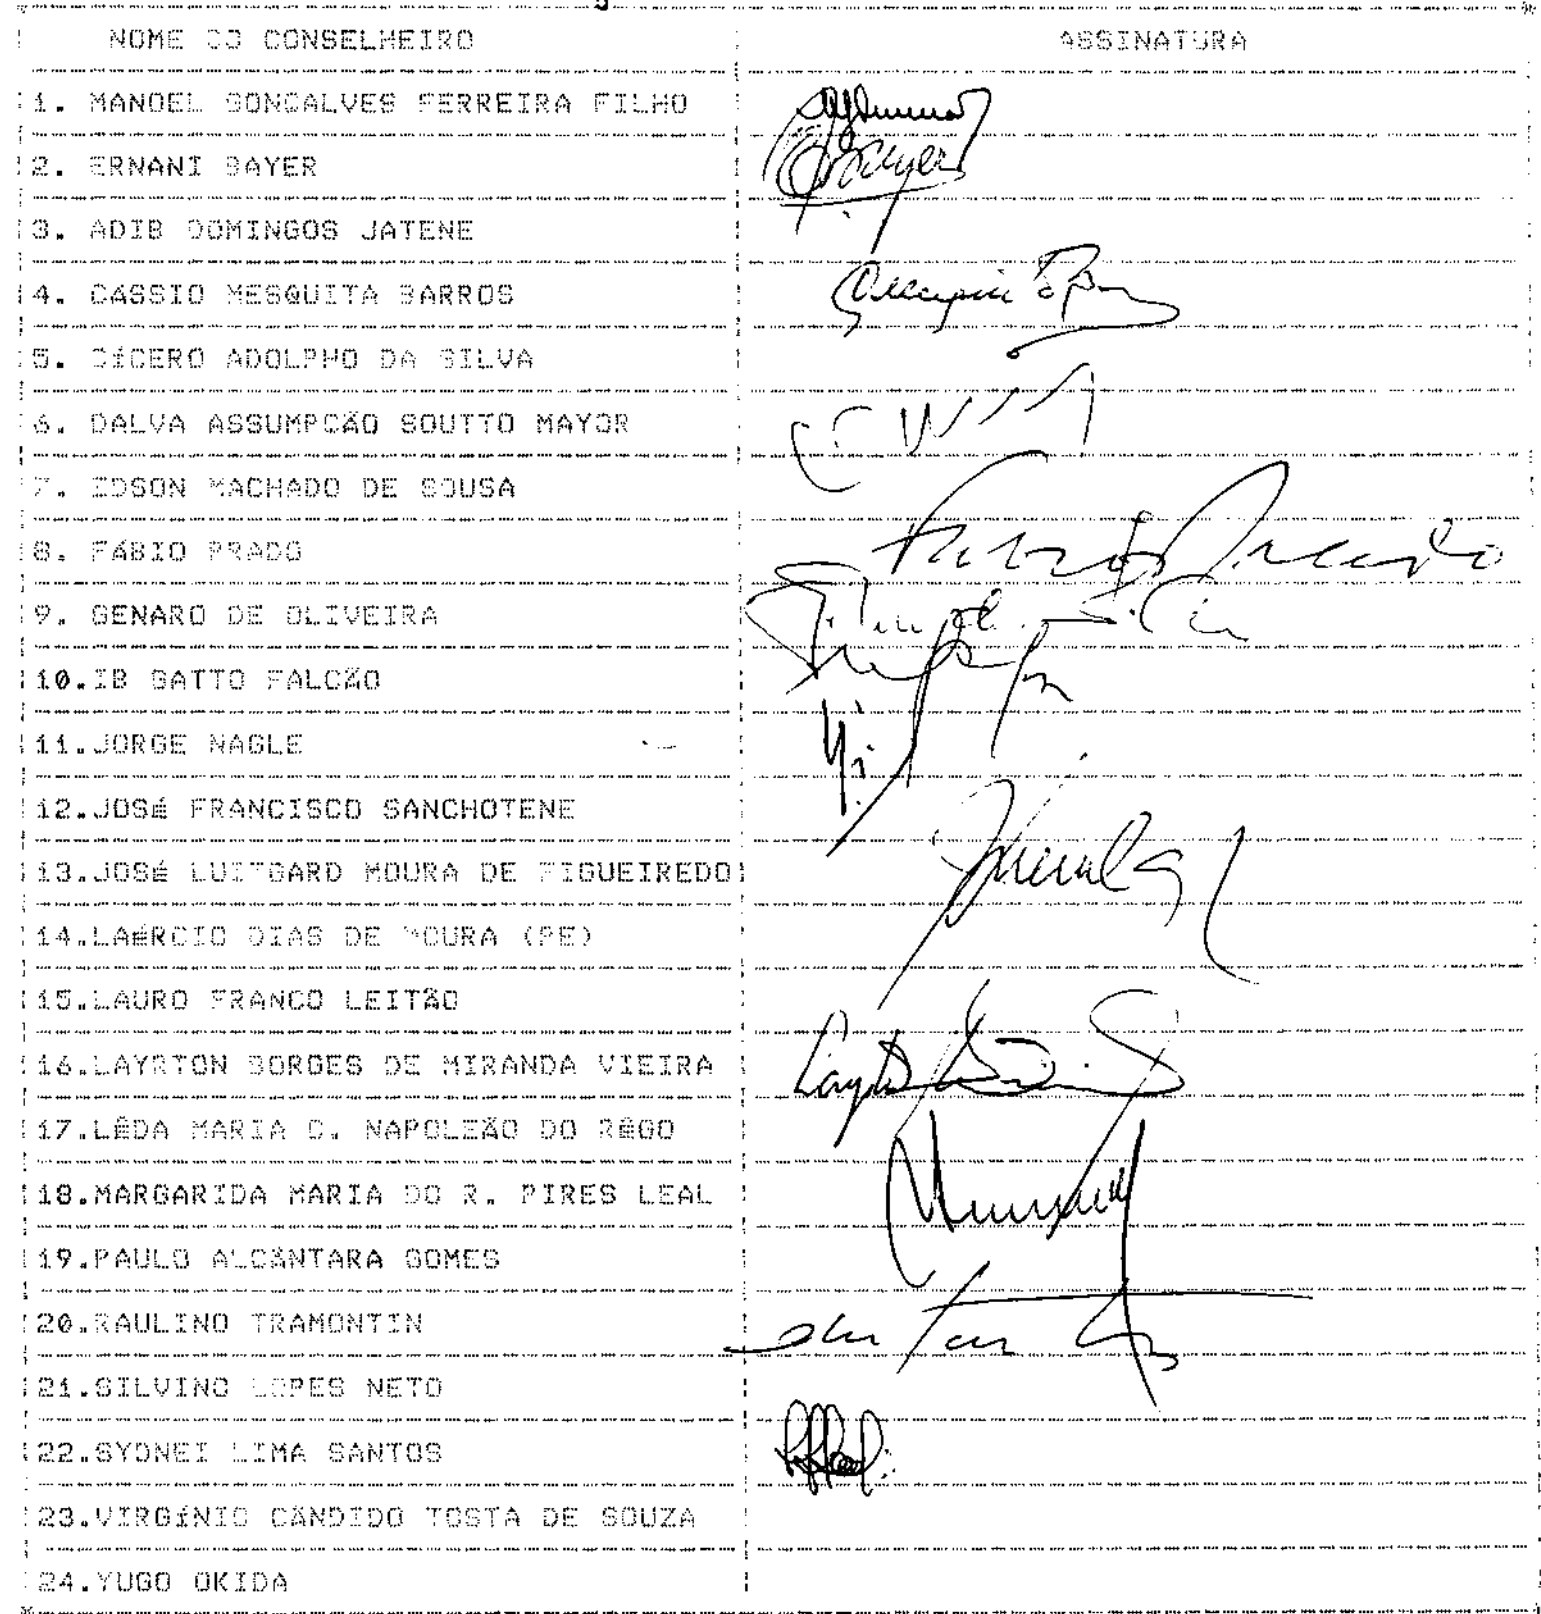 NOME DO CONSELHEIRO ASSINATURA
1. MANOEL GONÇALVES FERREIRA FILHO
2. ERNANI BAYER
3. ADIB DOMINGOS JATENE
4. CASSIO MESQUITA BARROS
5. CíCERO ADOLPHO DA SILVA
6. DALVA ASSUMPCÃO SOUTTO MAYOR
7. EDSON MACHADO DE SOUSA
8. FÁBIO PRADO
9. GENARO DE OLIVEIRA
10.IB GATTO FALCÃO
11.JORGE NAGLE
12.JOSÉ FRANCISCO SANCHOTENE
13.JOSÉ LUITGARD MOURA DE FIGUEIREDO
14.LAÉRCIO DIAS DE MOURA (PE)
15.LAURO FRANCO LEITÃO
16.LAYRTON BORGES DE MIRANDA VIEIRA
17.LÊDA MARIA C. NAPOLEÃO DO RÊGO
18.MARGARIDA MARIA DO R. PIRES LEAL
19.PAULO ALCÂNTARA GOMES
20.RAULINO TRAMONTIN
21.SILVINO LOPES NETO
22.SYDNEI LIMA SANTOS
23.VIRGíNIO CÂNDIDO TOSTA DE SOUZA
24.YUGO OKIDA